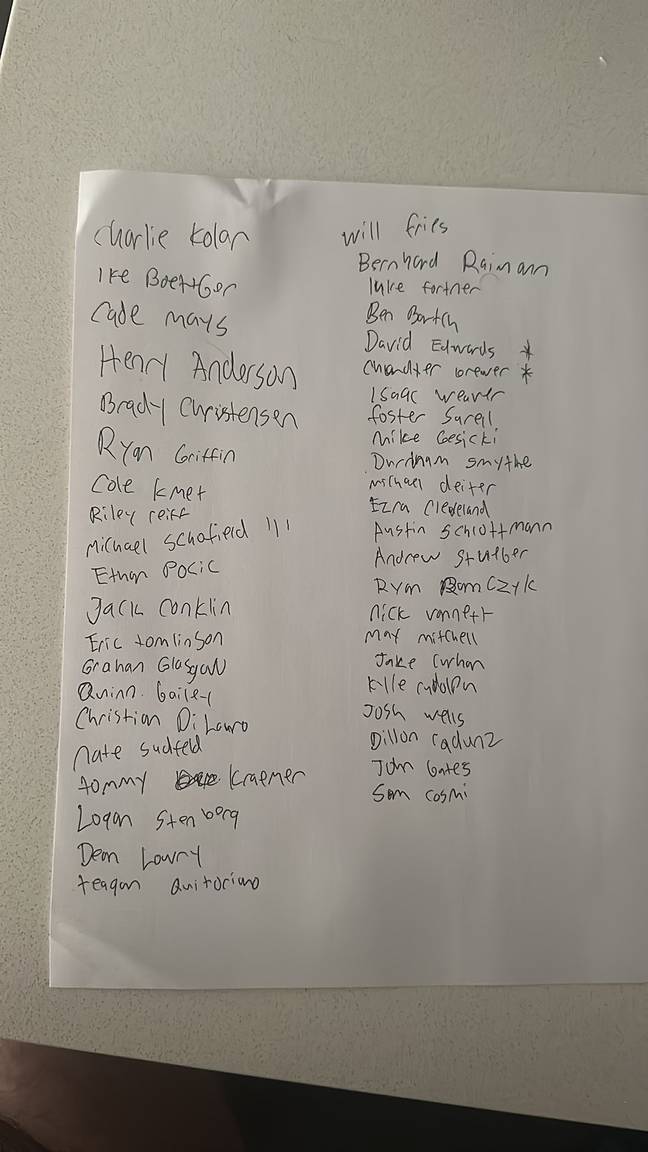 Charlie Kolar
Ike Boettger
Cade mays
Henry Anderson
Brady Christensen
Ryan Griffin
Cole kmet
Riley reiff
Michael schofield III
Ethan POCIC
Jack conklin
Eric tomlinson
Grahan Glasgow
Quinn Bailey
Christian DiLauro
nate sudfeld
tommy Kraemer
Logan Stenberg
Dean Lowry
teagan Quitoriano
will fries
Bernhard Raimann
luke fortner
Ben Bartch
David Edwards *
Chandler brewer *
Isaac weaver
foster Sarell
mike Gesicki
Durnham smythe
michael deiter
Ezra Cleveland
Austin schlottmann
Andrew Stueber
Ryan RamCZyk
nick vannett
max mitchell
Jake Curhan
kylle rudolph
Josh wells
Dillon radunz
John Gates
Sam cosmi